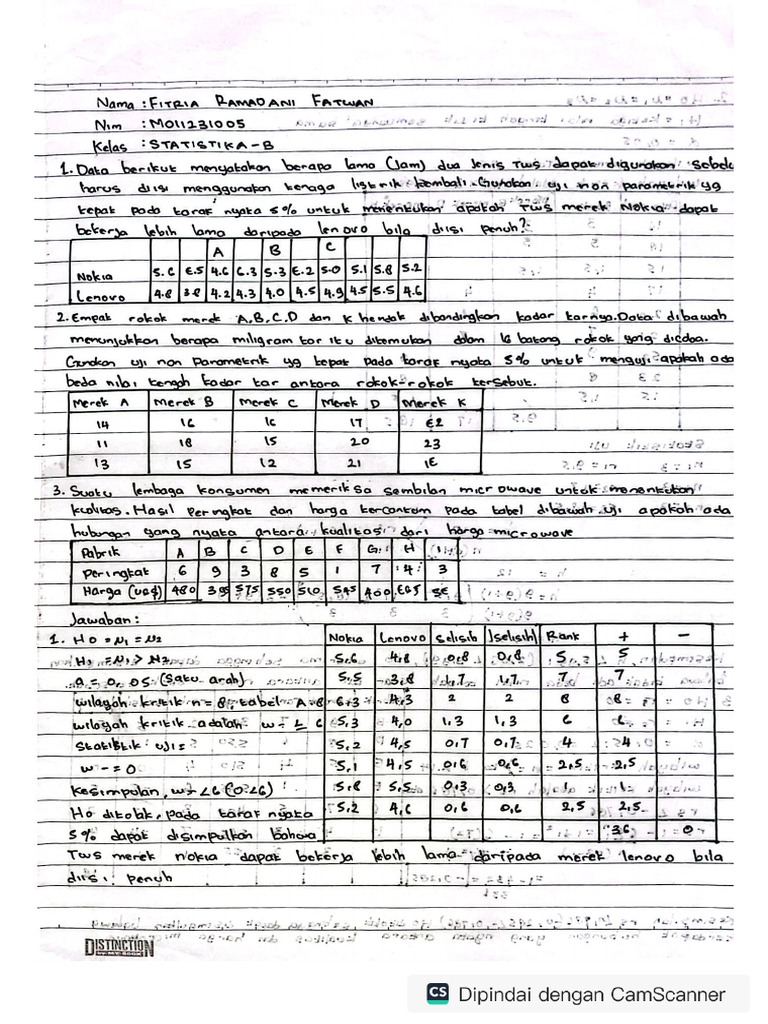 Nama : FITRIA RAMADANI FATWAN
Nim : M011231005
Kelas : STATISTIKA-B
1. Data berikut menyatakan berapa lama (jam) dua jenis TWS dapat digunakan sebelu
harus diisi menggunakan tenaga listrik kembali. Gunakan uji non parametrik yg
tepat pada taraf nyata 5% untuk menentukan apakah TWS merek Nokia dapat
bekerja lebih lama daripada lenovo bila diisi penuh?
A B C
Nokia 5.6 6.5 4.6 6.3 5.3 6.2 5.0 5.1 5.8 5.2
Lenovo 4.8 3.8 4.2 4.3 4.0 4.5 4.9 4.5 5.5 4.6
2. Empat rokok merek A,B,C,D dan K hendak dibandingkan kadar tarnya. Data dibawah
menunjukkan berapa miligram tar itu ditemukan dalam 16 batang rokok yang dicoba.
Gunakan uji non parametrik yg tepat pada taraf nyata 5% untuk menguji apakah ada
beda nilai tengah kadar tar antara rokok-rokok tersebut.
Merek A Merek B Merek C Merek D Merek K
14 16 16 17 62
11 18 15 20 23
13 15 12 21 16
3. Suatu lembaga konsumen memeriksa sembilan microwave untuk menentukan
kualitas. Hasil peringkat dan harga tercantum pada tabel dibawah. uji apakah ada
hubungan yang nyata antara kualitas dari harga microwave
Pabrik A B C D E F G H I
Peringkat 6 9 3 8 5 1 7 4 3
Harga (US$) 480 395 575 550 510 545 400 665 56
Jawaban :
1. H0 = μ1 = μ2 Nokia Lenovo Selisih |Selisih| Rank + -
H1 = μ1 > μ2 5,6 4,8 0,8 0,8 5 5
α = 0,05 (satu arah) 5,5 3,8 1,7 1,7 7 7
wilayah kritik n=8, tabel A=8 6,3 4,3 2 2 8 8
wilayah kritik adalah w- ≤ 6 5,3 4,0 1,3 1,3 6 6
Statistik uji = 5,2 4,5 0,7 0,7 4 4
w- = 0 5,1 4,5 0,6 0,6 2,5 2,5
Kesimpulan, w- < 6 (0<6) 5,8 5,5 0,3 0,3 1 1
H0 ditolak, pada taraf nyata 5,2 4,6 0,6 0,6 2,5 2,5
5% dapat disimpulkan bahwa 36 0
Tws merek nokia dapat bekerja lebih lama daripada merek lenovo bila
diisi penuh
DISTINCTION
CS Dipindai dengan CamScanner